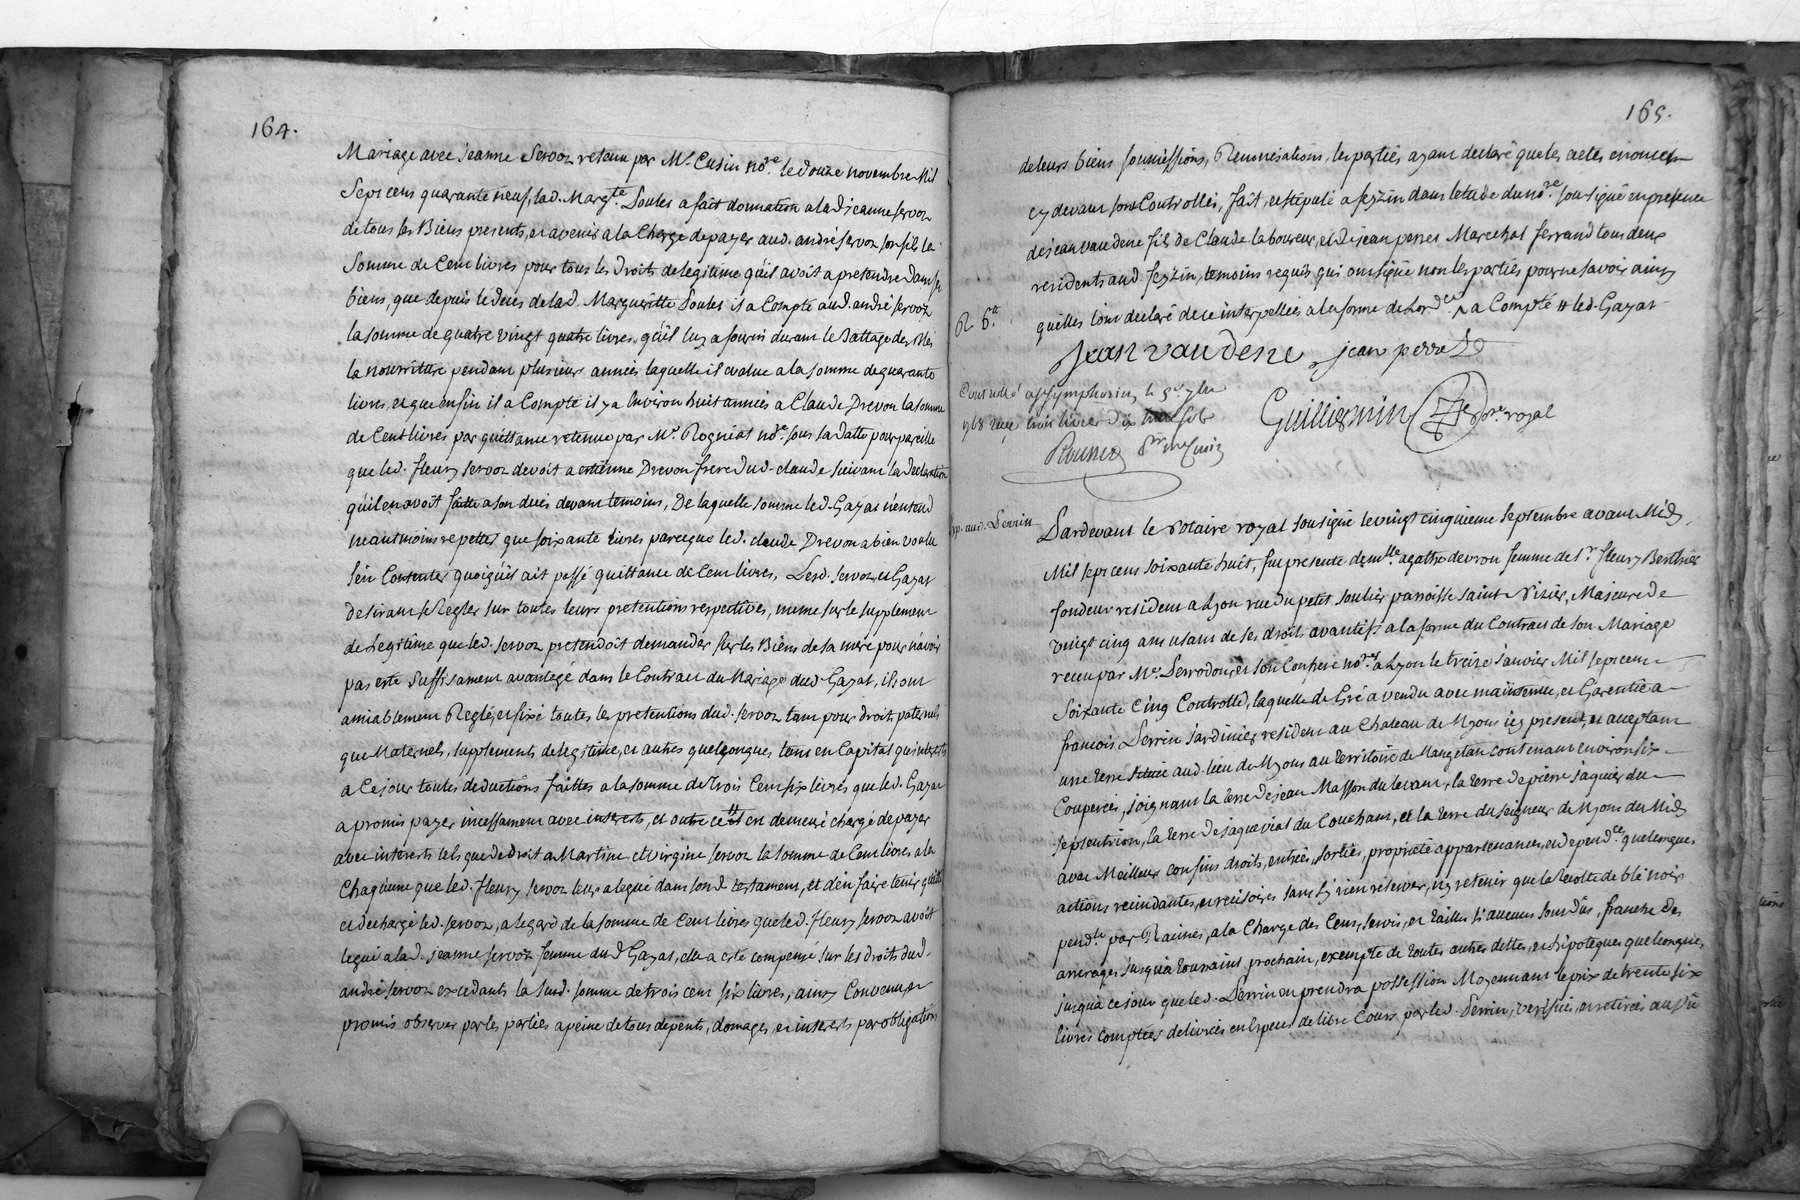 164.
Mariage avec jeanne Servoz retenu par Me. Cusin nore. le douze novembre Mil
Sept cent quarante neuf, lad. Margte. Soulet a fait donnation a lad jeanne servoz
de tous ses Biens presents, et avenir a la Charge de payer aud. andré servoz son fils la
Somme de Cent livres pour tous les droits de légitime qu'il avoit a pretendre dans ses
biens, que depuis le deces de lad. Margueritte Soulet il a Compté aud. andré servoz
la somme de quatre vingt quatre livres, qu'il luy a fourni durant le Battage des Bles
la nourriture pendant plusieurs années laquelle il evalue a la somme de quarante
livres, et que enfin il a Compté il y a Environ huit années a Claude Drevon la somme
de Cent livres par quittance retenue par Me. Rogniat nore. sous sa datte pour pareille
que led. fleury servoz devoit a etienne Drevon frere dud. claude suivant la declaration
qu'il en avoit faitte a son deces devant temoins, De laquelle somme led. Gayat n'entend
neantmoins repetter que soixante livres parceque led. claude Drevon a bien voulu
s'en Contenter quoiqu'il ait passé quittance de Cent livres, Lesd. servoz et Gayat
desirant se Regler sur toutes leurs pretentions respectives, meme sur le supplement
de Legitime que led. servoz pretendoit demander sur les Biens de sa mere pour n'avoir
pas eté suffisament avantagé dans le Contract du Mariage dud Gayat, ils ont
amiablement Reglé, et fixé toutes les pretentions dud. servoz tant pour droits paternels
que Maternels, supplements de legitime, et autres quelconque, tant en Capital qu'interests
a Ce jour toutes deductions faittes a la somme de Trois Cent six livres que led. Gayat
a promis payer incessament avec interests, et outre ce en demeure chargé de payer
avec interests tels que de droit a Martine et virgine servoz la somme de Cent livres a la
Chaqu'une que led. fleury servoz leur a legué dans sond testament, et d'en faire tenir quitte
et dechargé led. servoz, a legard de la somme de Cent livres que led. fleury servoz avoit
legué a lad. jeanne servoz femme dud Gayat, elle a eté compensé sur les droits dud.
andré servoz excedants la susd. somme de trois cent six livres, ainsy Convenu et
promis observer par les parties a peine de tous depents, domages, et interests par obligation
165.
de leurs biens soumissions, Renonciations, les parties ayant declaré que les actes enoncés
cy devant sont Controllés, fait, et stipulé a feyzin dans letude du nore. sousigné en presence
de jean vaudene fils de Claude laboureur, et de jean perret Marechal ferrand tous deux
residents aud. feyzin, temoins requis qui ont signé non les parties pour ne savoir ainsy
qu'elles l'ont declaré de ce interpellées a la forme de Lordce. a Compté # led. Gayat
R. 6.tt
Jean vaudene jean perret
Controllé a St Symphorien le 5e 7bre
1768 reçu trois livres dix sols
Guilliermin nore royal
exp. aud. Perrin
Pardevant le Notaire royal sousigné le vingt cinquieme septembre avant Midy
Mil sept cent soixante huit, fut presente demlle agathe devron femme de sr. fleury Berthier
fondeur resident a Lyon rue du petit soulier paroisse saint Nizier, Majeure de
vingt cinq ans usant de ses droits avantifs a la forme du Contract de son Mariage
receu par Mes. Perrodon et son Confrere nores a Lyon le treize janvier Mil sept cent
Soixante Cinq Controllé, laquelle de Gré a vendu avec maintenüe, et Garentie a
francois Perrin jardinier resident au Chateau de Myons icy present, et acceptant
une terre située aud. lieu de Myons au territoire de Mangetan contenant environ six
Couperées, joignant la terre de jean Masson du levant, la terre de pierre jaquier du
septentrion, la terre de jaque viat du Couchant, et la terre du seigneur de Myons du Midy
avec Meilleurs confins droits, entrées, sorties, proprieté appartenances, et dependces. quelconques,
actions recindantes, et recisoires sans s'y rien reserver, ny retenir que la recolte de blé noir
pendte par Racines, a la Charge des Cens, servis, et tailles si aucuns sont dûs, franche des
arrerages jusqu'a toussaint prochain, exempte de toutes autres dettes, et hipoteques quelconques,
jusqu'a ce jour que led. Perrin en prendra possession Moyennant le prix de trente six
livres comptées delivrées en Especes de libre Cours par led. Perrin, verifiées, et retirées au vû